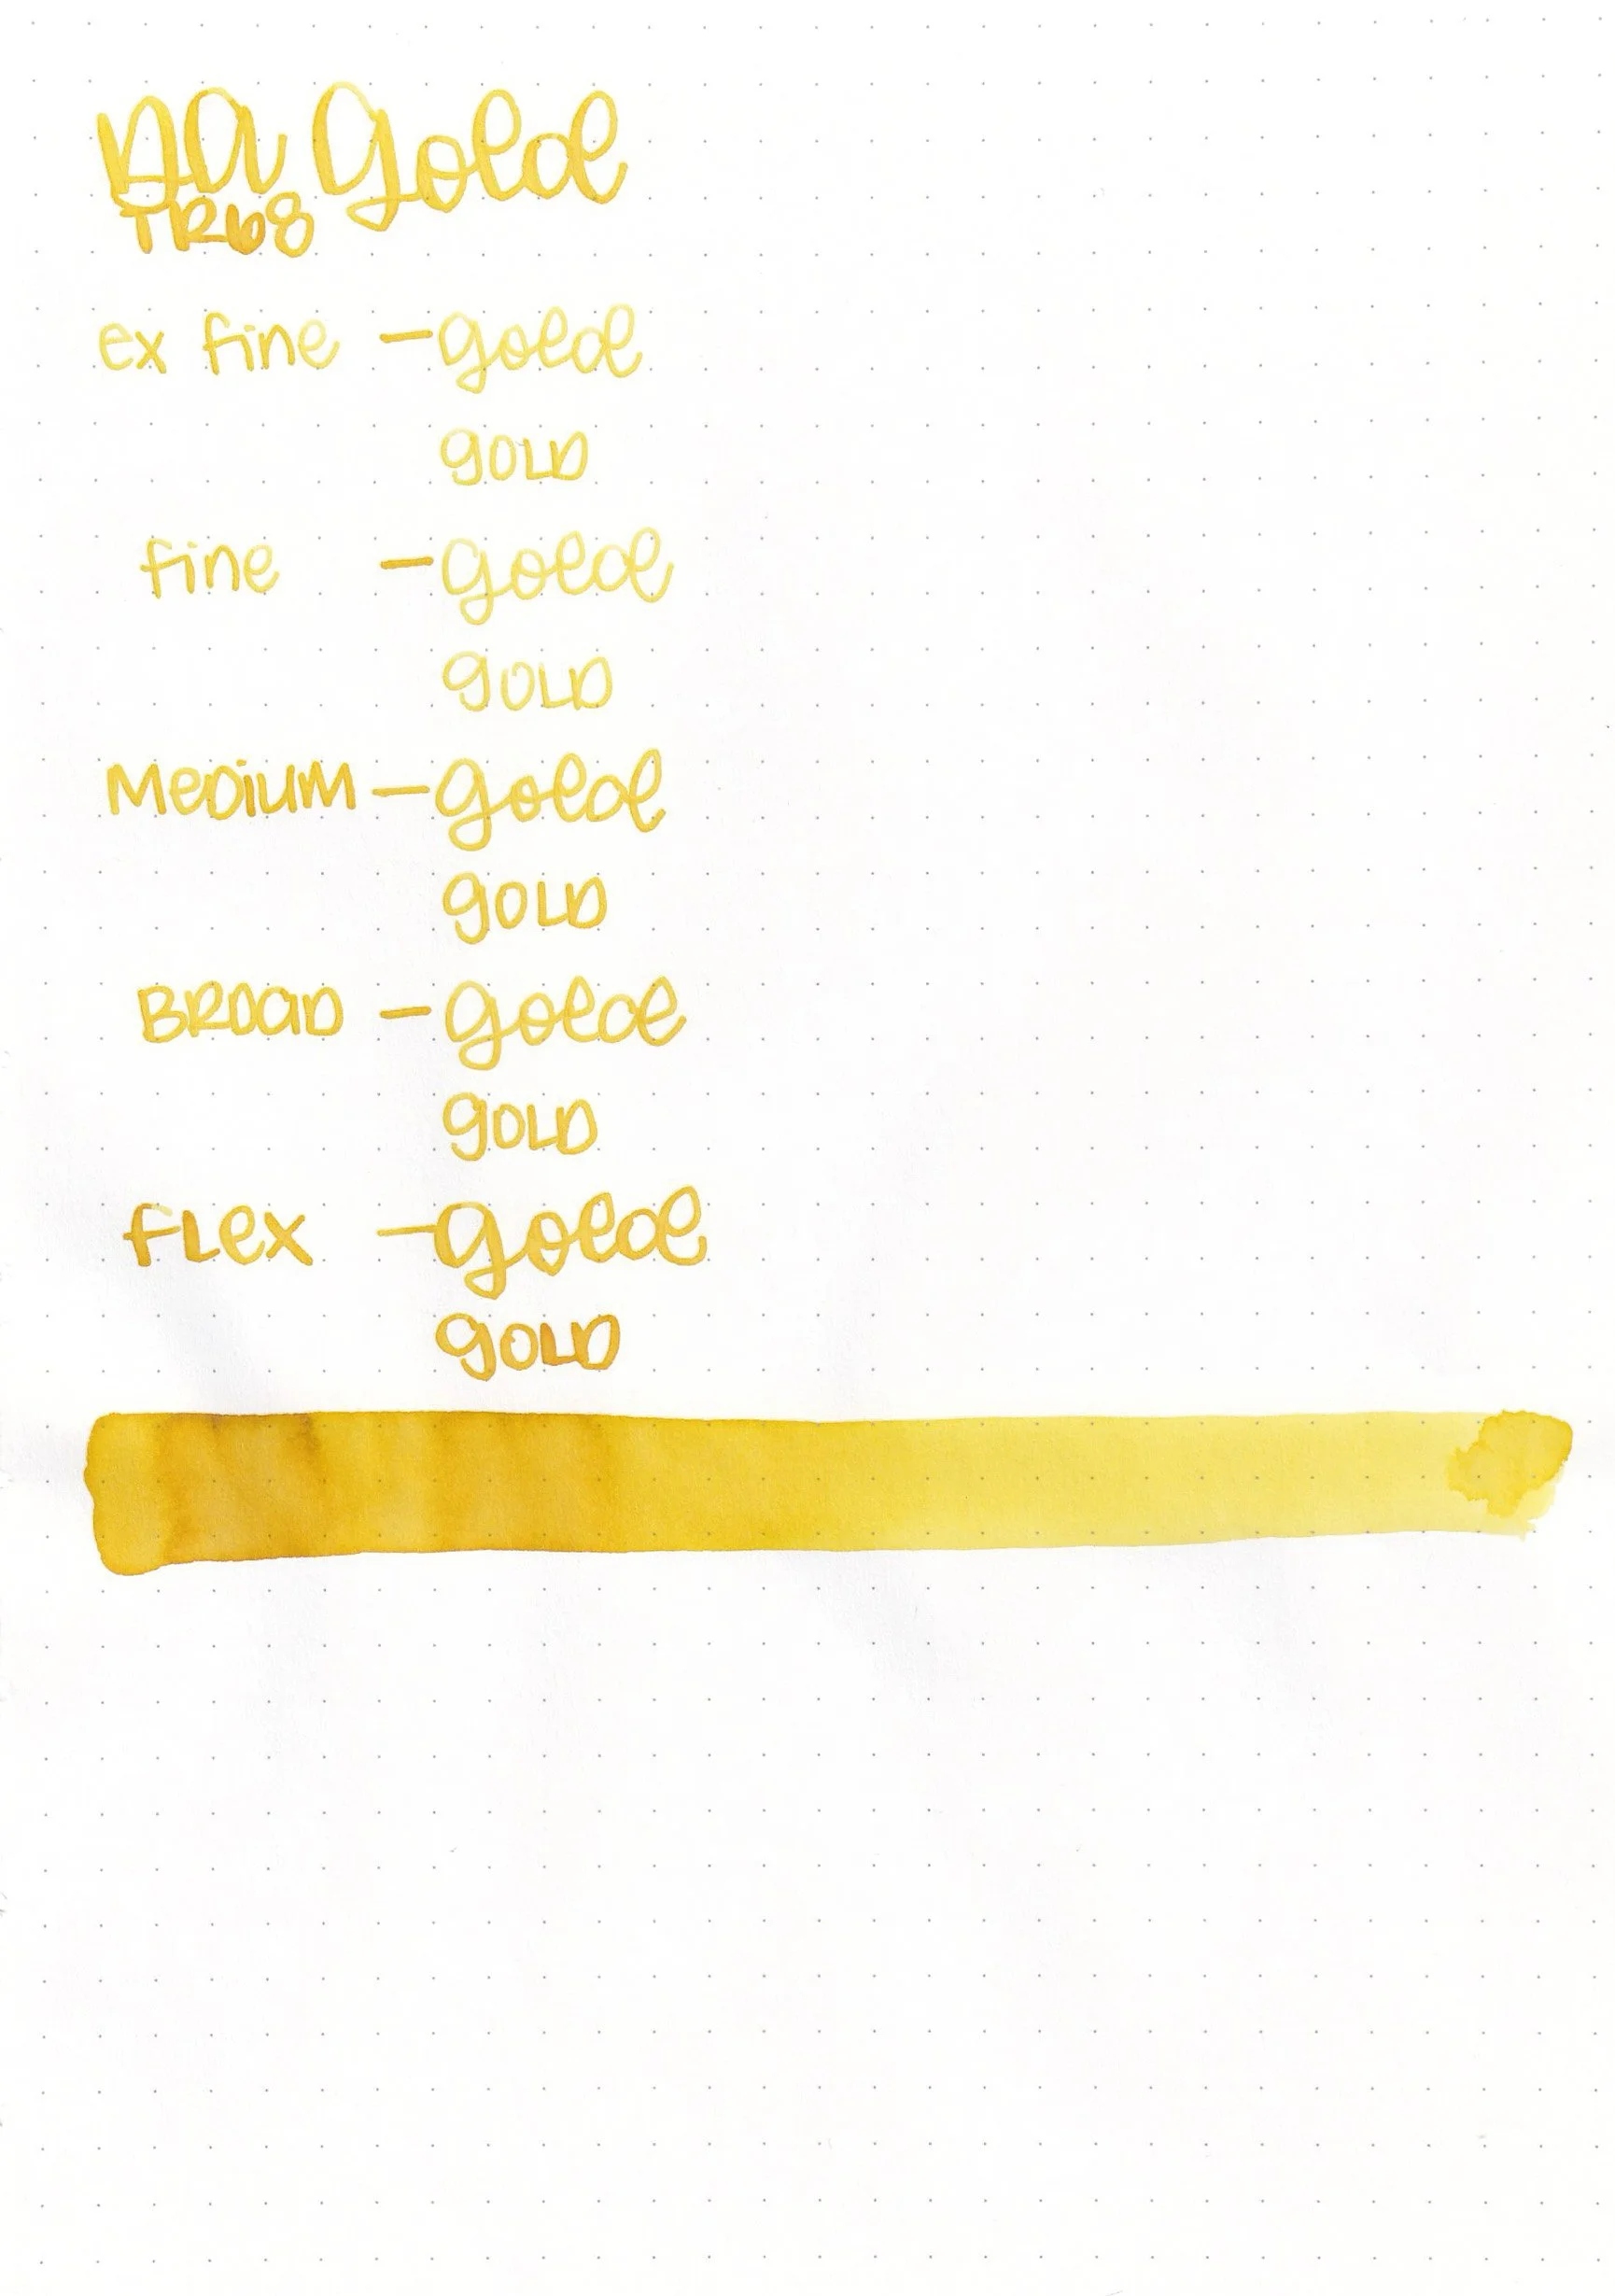 DA Gold
TR68
ex fine — gold
gOLD
fine — gold
gOLD
MeDiuM — gold
gOLD
BROAD — gold
gOLD
fLex — gold
gOLD